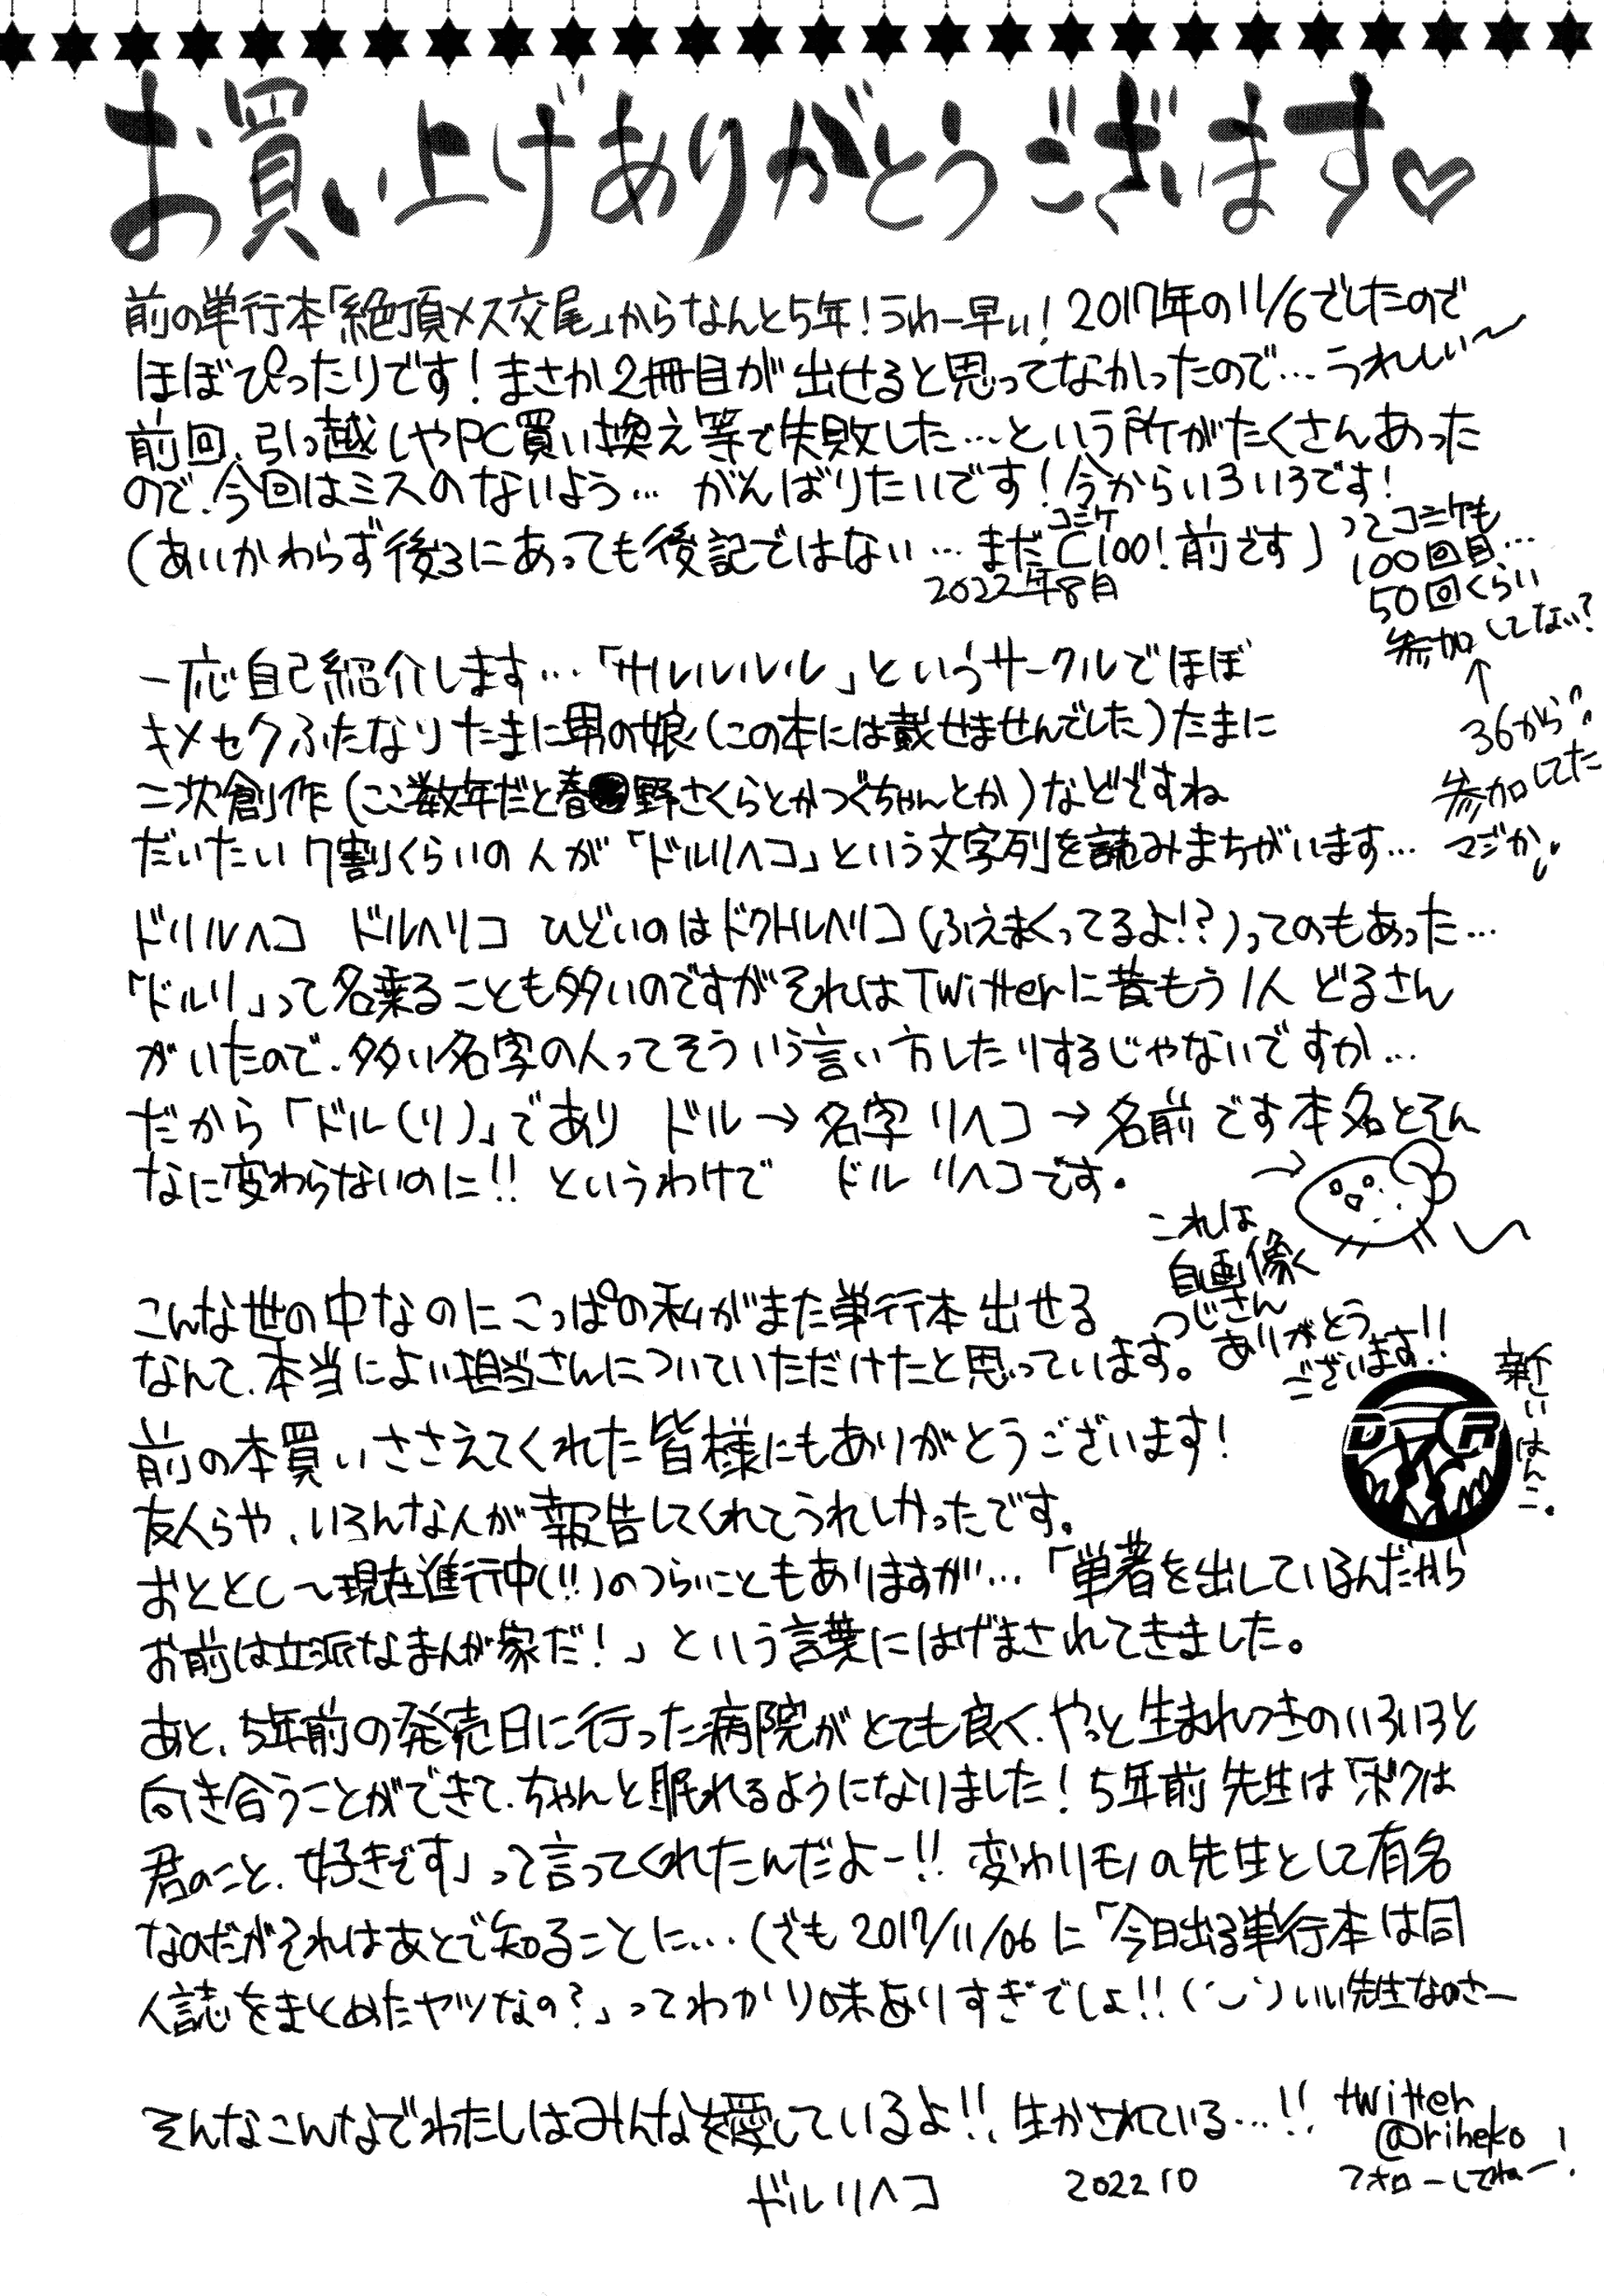 お買い上げありがとうございます♡
前の単行本「絶頂メス交尾」からなんと5年!うわー早い!2017年の11/6でしたので
ほぼぴったりです!まさか2冊目が出せると思ってなかったので…うれしい〜
前回、引っ越しやPC買い換え等で失敗した…という所がたくさんあった
ので、今回はミスのないよう… がんばりたいです!今からいろいろです!
(あいかわらず後ろにあっても後記ではない…まだC100!前です)
コミケ
2022年8月
ってコミケも
100回目…
50回くらい
参加してない?
↑
36から
参加してた
マジか
一応自己紹介します…「サルルルルル」というサークルでほぼ
キメセクふたなりたまに男の娘(この本には載せませんでした)たまに
二次創作(ここ数年だと春野さくらとかつぐちゃんとか)などですね
だいたい7割くらいの人が「ドルリヘコ」という文字列を読みまちがいます…
ドリルヘコ ドルヘリコ ひどいのはドクトルヘリコ(ふえまくってるよ!?)ってのもあった…
「ドルリ」って名乗ることも多いのですがそれはTwitterに昔もう1人 どるさん
がいたので、多い名字の人ってそういう言い方したりするじゃないですか…
だから「ドル(リ)」であり ドル→名字 リヘコ→名前です本名とそん
なに変わらないのに!!というわけで ドルリヘコです。
これは
自画像く
こんな世の中なのにこっぱの私がまた単行本出せる
なんて、本当によい担当さんについていただけたと思っています。
つじさん
ありがとう
ございます!!
新しいはんこ。
D R
前の本買いささえてくれた皆様にもありがとうございます!
友人らや、いろんな人が報告してくれてうれしかったです。
おととし〜現在進行中(!!)のつらいこともありますが…「単著を出しているんだから
お前は立派なまんが家だ!」という言葉にはげまされてきました。
あと、5年前の発売日に行った病院がとても良く、やっと生まれつきのいろいろと
向き合うことができて、ちゃんと眠れるようになりました!5年前先生は「ボクは
君のこと、好きです」って言ってくれたんだよー!!変わりモノの先生として有名
なのだがそれはあとで知ることに…(でも2017/11/06に「今日出る単行本は同
人誌をまとめたヤツなの?」ってわかり味ありすぎでしょ!!(´⌣`)いい先生なのさー
そんなこんなでわたしはみんなを愛しているよ!!生かされている…!!
twitter
@riheko
フォローしてねー!
ドルリヘコ 2022 10